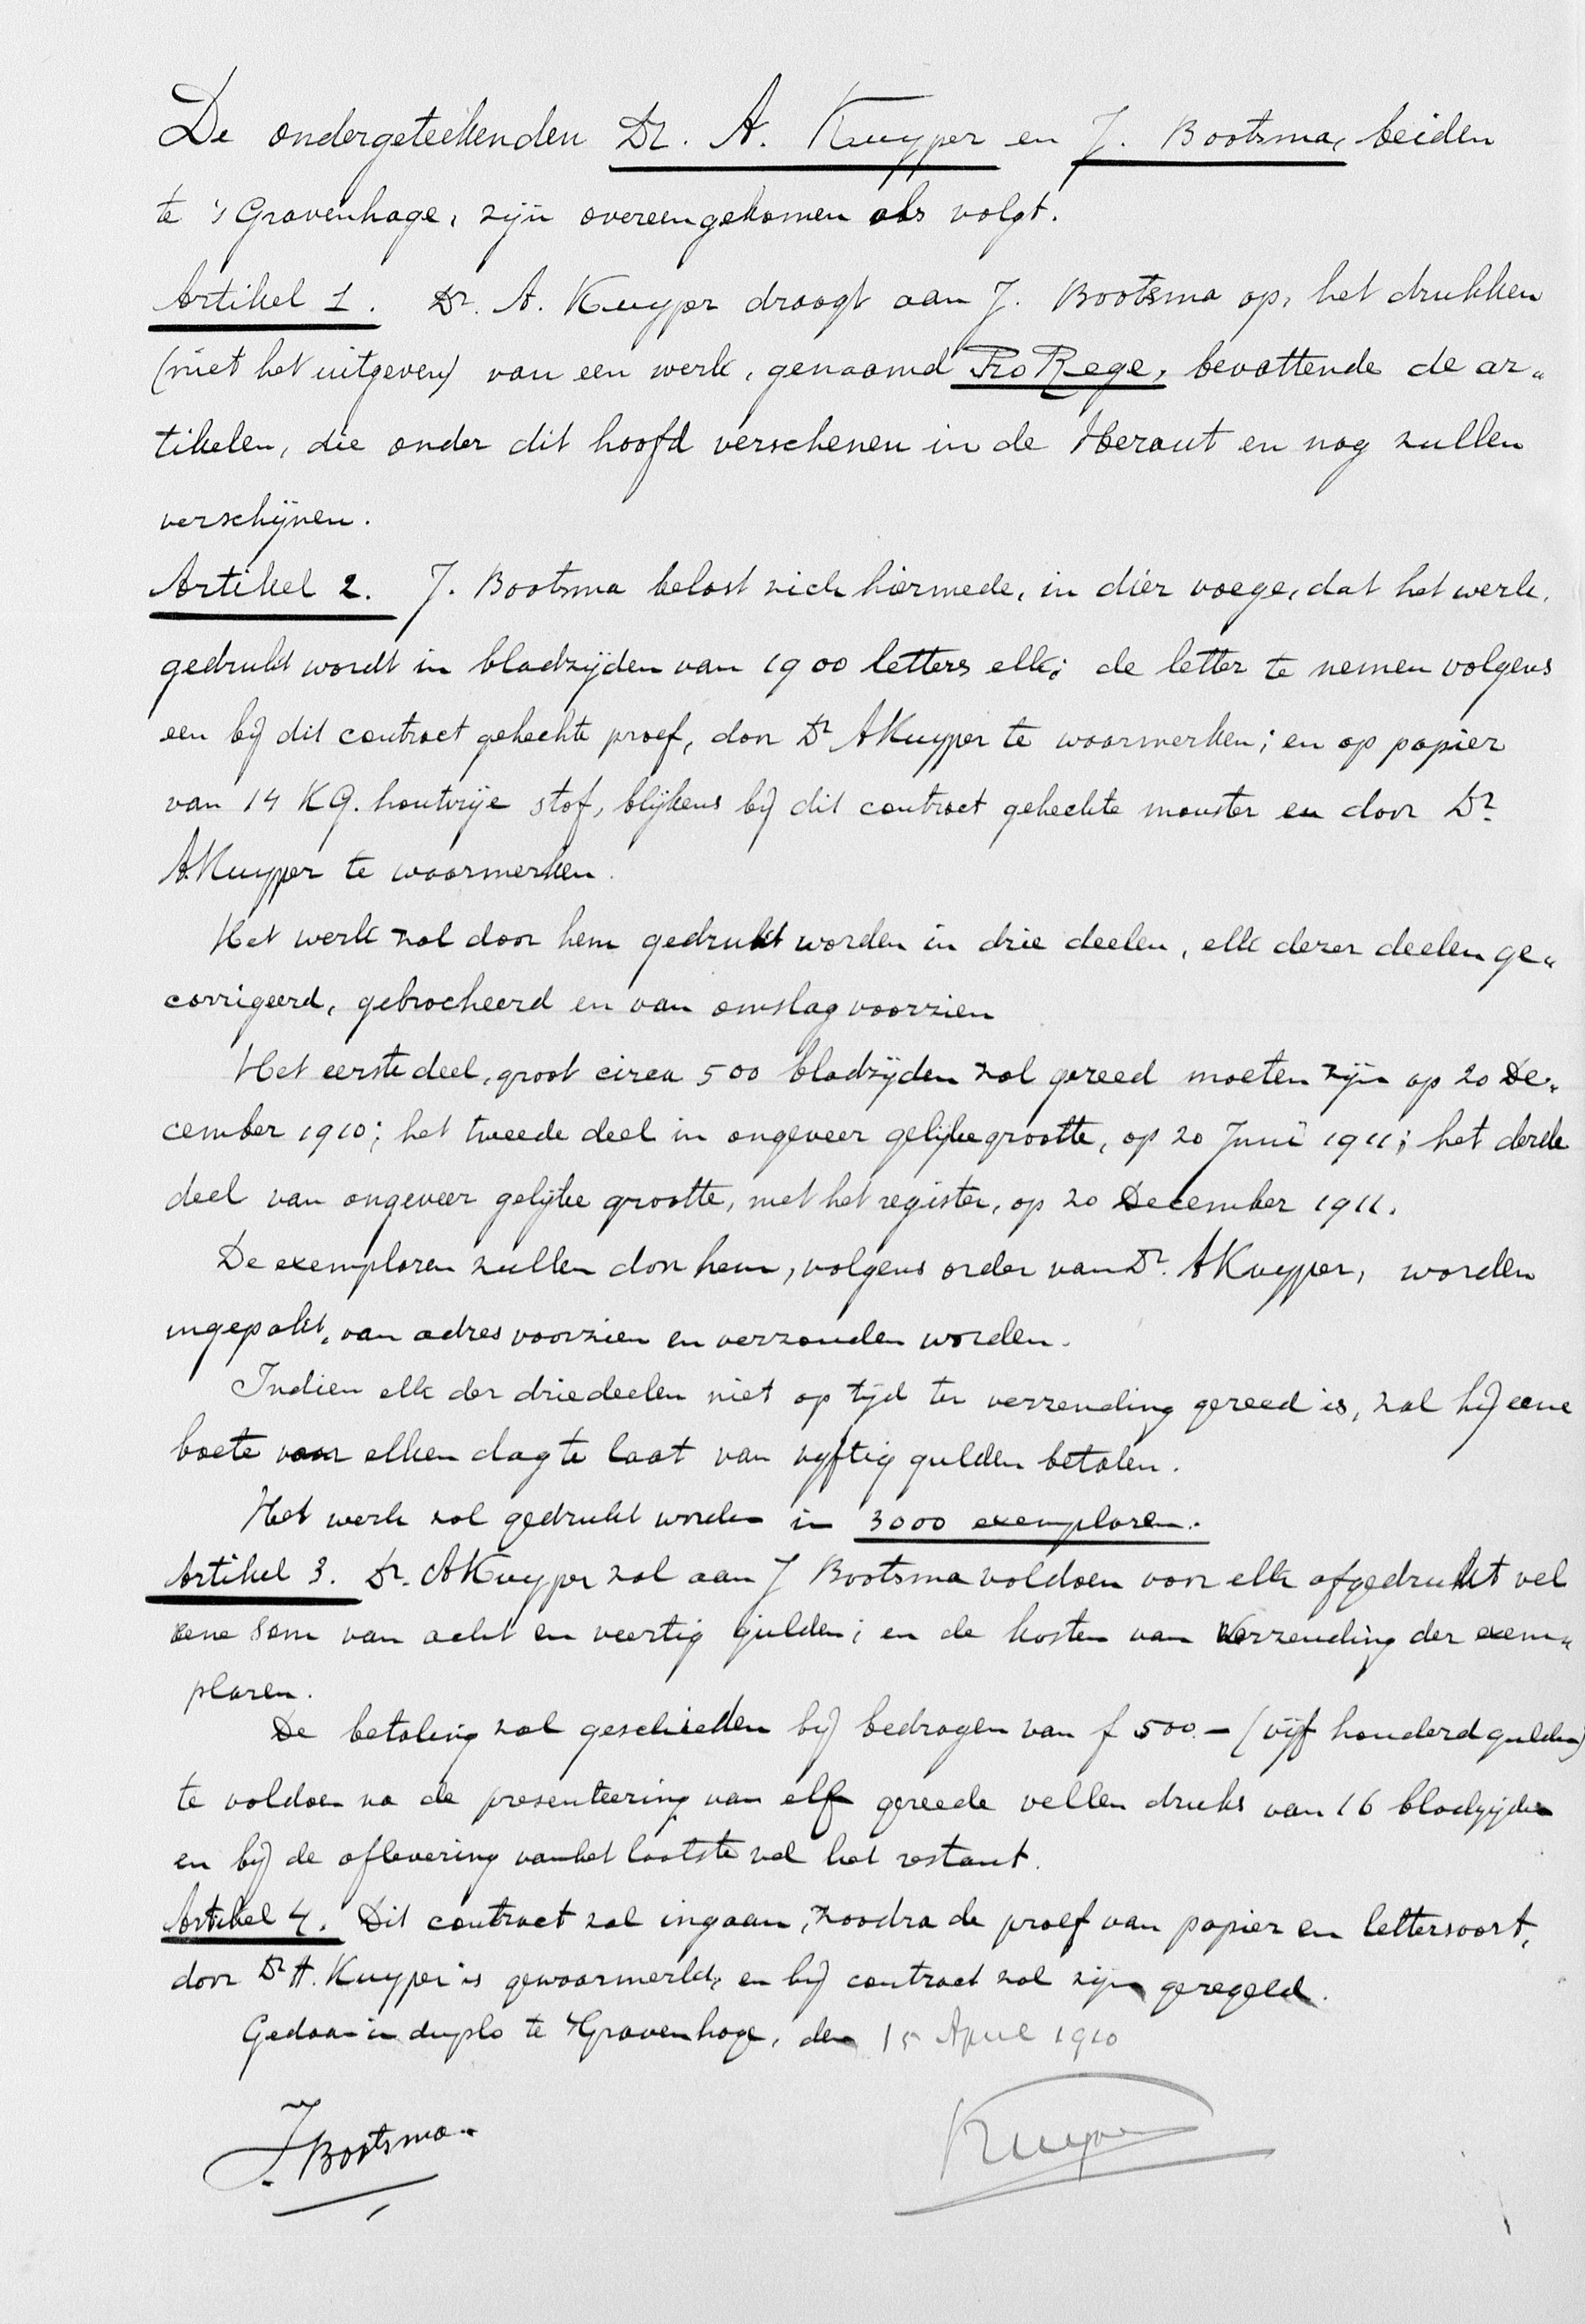 De ondergeteekenden Dr. A. Kuyper en J. Bootsma, beiden
te 's Gravenhage, zijn overeengekomen als volgt.
Artikel 1. Dr. A. Kuyper draagt aan J. Bootsma op, het drukken
(niet het uitgeven) van een werk, genaamd Pro Rege, bevattende de ar„
tikelen, die onder dit hoofd verschenen in de Heraut en nog zullen
verschijnen.
Artikel 2. J. Bootsma belast zich hiermede, in dier voege, dat het werk,
gedrukt wordt in bladzijden van 1900 letters elk; de letter te nemen volgens
een bij dit contract gehechte proef, door Dr A Kuyper te waarmerken; en op papier
van 14 KG. houtvrije stof, blijkens bij dit contract gehechte monster en door Dr.
A. Kuyper te waarmerken.
Het werk zal door hem gedrukt worden in drie deelen, elk dezer deelen ge„
corrigeerd, gebrocheerd en van omslag voorzien
Het eerste deel, groot circa 500 bladzijden zal gereed moeten zijn op 20 De„
cember 1910; het tweede deel in ongeveer gelijke grootte, op 20 Juni 1911; het derde
deel van ongeveer gelijke grootte, met het register, op 20 December 1911.
De exemplaren zullen door hem, volgens order van Dr. A Kuyper, worden
ingepakt, van adres voorzien en verzonden worden.
Indien elk der drie deelen niet op tijd ter verzending gereed is, zal hij eene
boete voor elken dag te laat van vyftig gulden betalen.
Het werk zal gedrukt worden in 3000 exemplaren.
Artikel 3. Dr. A Kuyper zal aan J Bootsma voldoen voor elk afgedrukt vel
eene som van acht en veertig gulden; en de kosten van verzending der exem„
plaren.
De betaling zal geschieden bij bedragen van f 500.– (vijf honderd gulden)
te voldoen na de presenteering van elf gereede vellen druks van 16 bladzijden
en bij de aflevering van het laatste vel het restant.
Artikel 4. Dit contract zal ingaan, zoodra de proef van papier en lettersoort,
door Dr A. Kuyper is gewaarmerkt, en bij contract zal zijn geregeld.
Gedaan in duplo te 's Gravenhage, den 15 April 1910
J. Bootsma. Kuyper